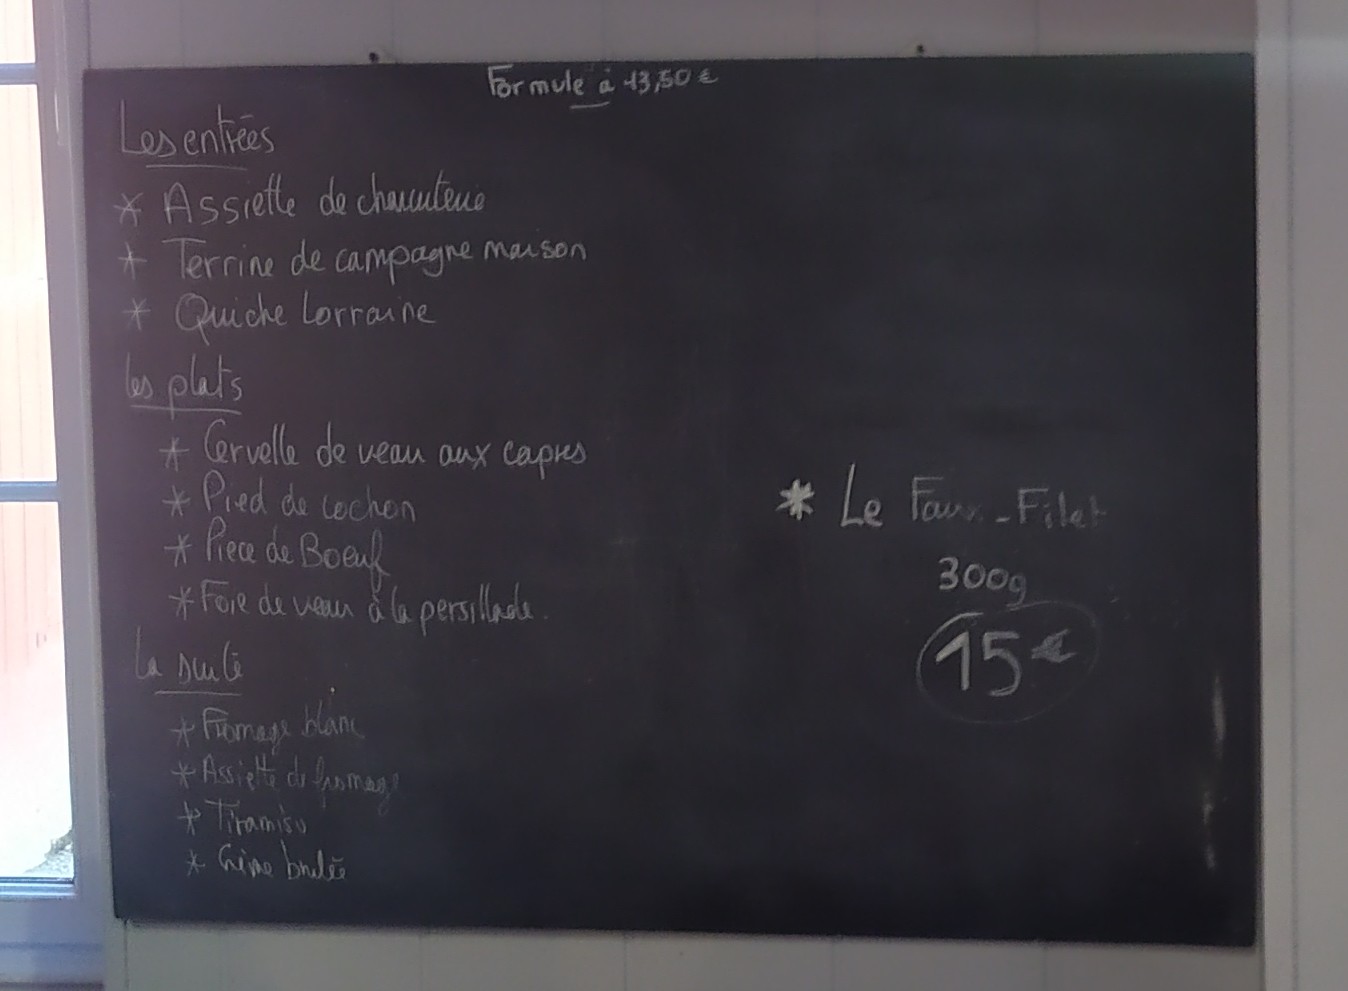 Formule à 13,50 €
Les entrées
* Assiette de charcuterie
* Terrine de campagne maison
* Quiche Lorraine
Les plats
* Cervelle de veau aux capres
* Pied de cochon
* Piece de Boeuf
* Foie de veau à la persillade.
La suite
* Fromage blanc
* Assiette de fromage
* Tiramisu
* Crème brulée
* Le Faux-Filet
300g
15€